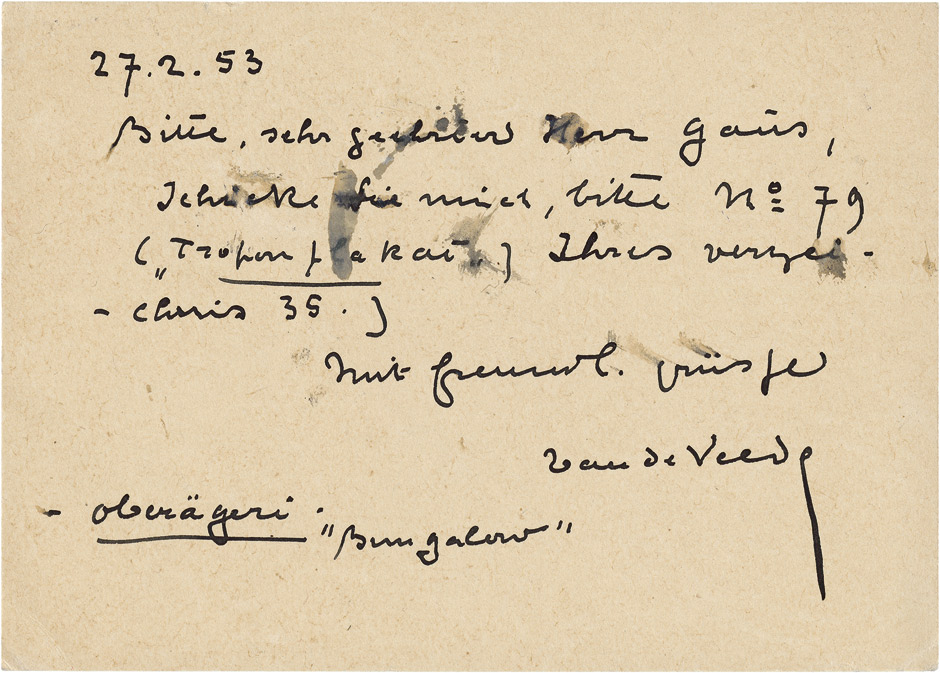 27.2.53
Bitte, sehr geehrter Herr Gaüs,
Schicke Sie mich, bitte No 79
(„Tropon plakat.) Ihres verzei-
- chnis 35.)
Mit freundl. grüsse
Van de Velde
- oberägeri.
"Bungalow"